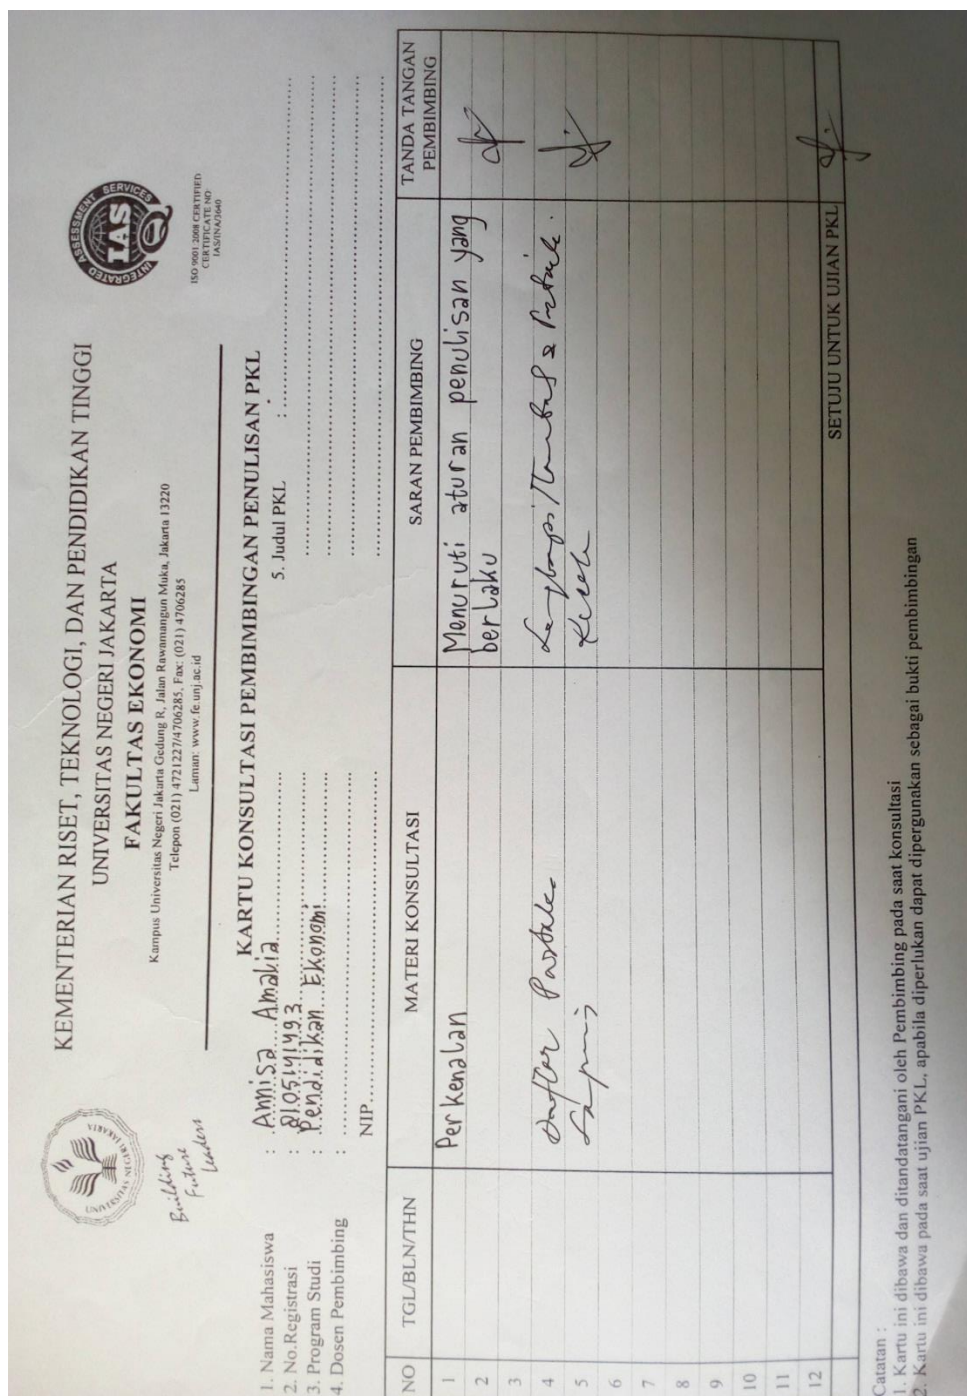 UNIVERSITAS NEGERI JAKARTA
Building
Future
Leaders
KEMENTERIAN RISET, TEKNOLOGI, DAN PENDIDIKAN TINGGI
UNIVERSITAS NEGERI JAKARTA
FAKULTAS EKONOMI
Kampus Universitas Negeri Jakarta Gedung R, Jalan Rawamangun Muka, Jakarta 13220
Telepon (021) 4721227/4706285, Fax: (021) 4706285
Laman: www.fe.unj.ac.id
INTEGRATED ASSESSMENT SERVICES
IAS
ISO 9001:2008 CERTIFIED
CERTIFICATE NO:
IAS/INA/3640
KARTU KONSULTASI PEMBIMBINGAN PENULISAN PKL
1. Nama Mahasiswa : Annisa Amalia
5. Judul PKL :
2. No.Registrasi : 8105141493
3. Program Studi : Pendidikan Ekonomi
4. Dosen Pembimbing :
NIP
NO TGL/BLN/THN MATERI KONSULTASI SARAN PEMBIMBING TANDA TANGAN PEMBIMBING
1 Perkenalan Menuruti aturan penulisan yang
2 berlaku
3
4 Daftar
5
6
7
8
9
10
11
12
SETUJU UNTUK UJIAN PKL
Catatan :
1. Kartu ini dibawa dan ditandatangani oleh Pembimbing pada saat konsultasi
2. Kartu ini dibawa pada saat ujian PKL, apabila diperlukan dapat dipergunakan sebagai bukti pembimbingan